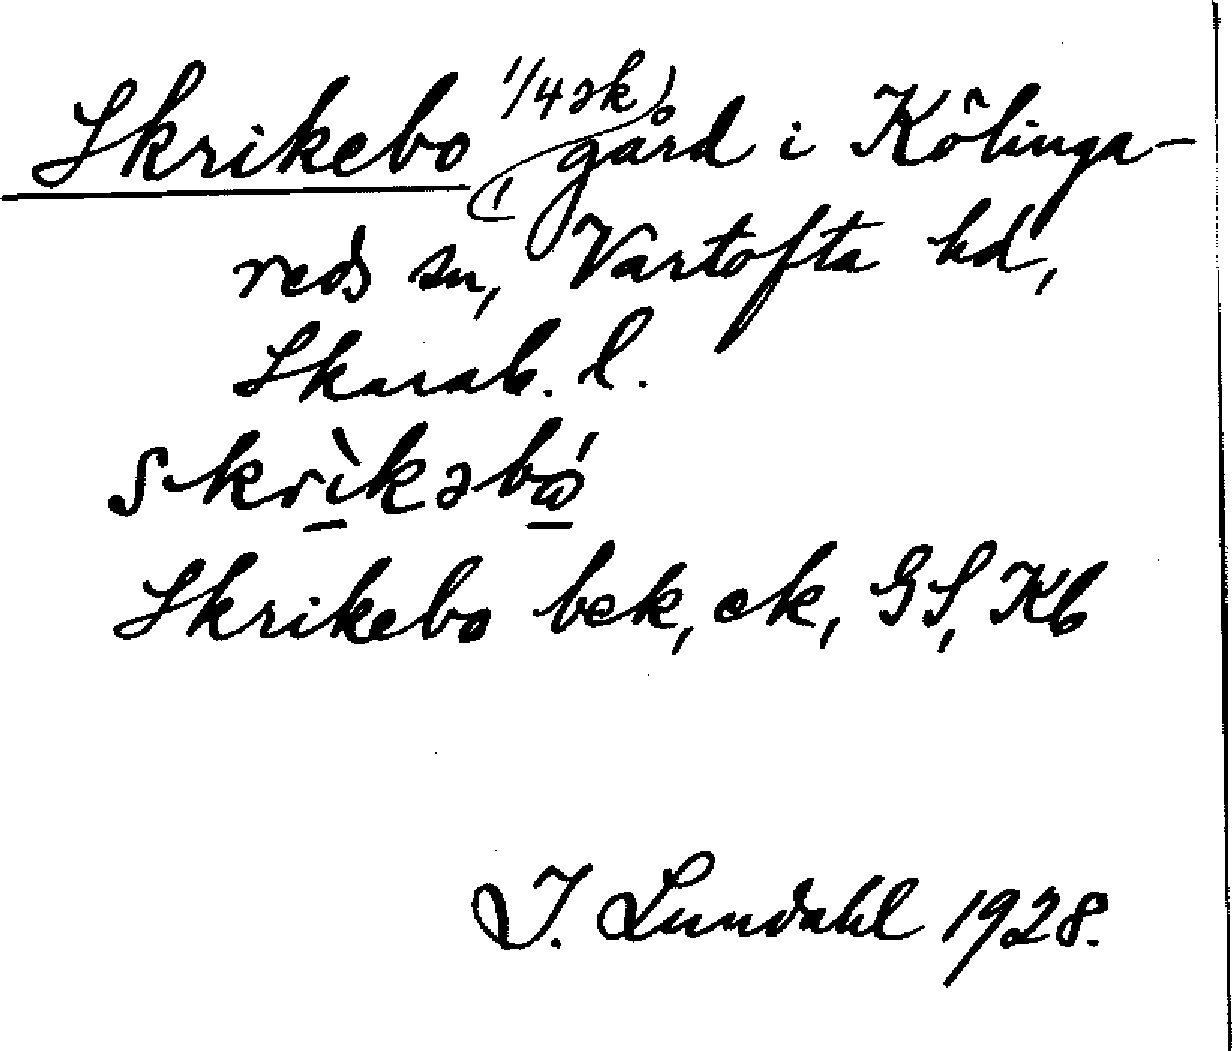 Skrikebo 1/4 sk) gård i Kölinga-
reds sn, Vartofta hd,
Skarab. l.
skrìkəbó
Skrikebo bek, ek, GS, Kb
I. Lundahl 1928.